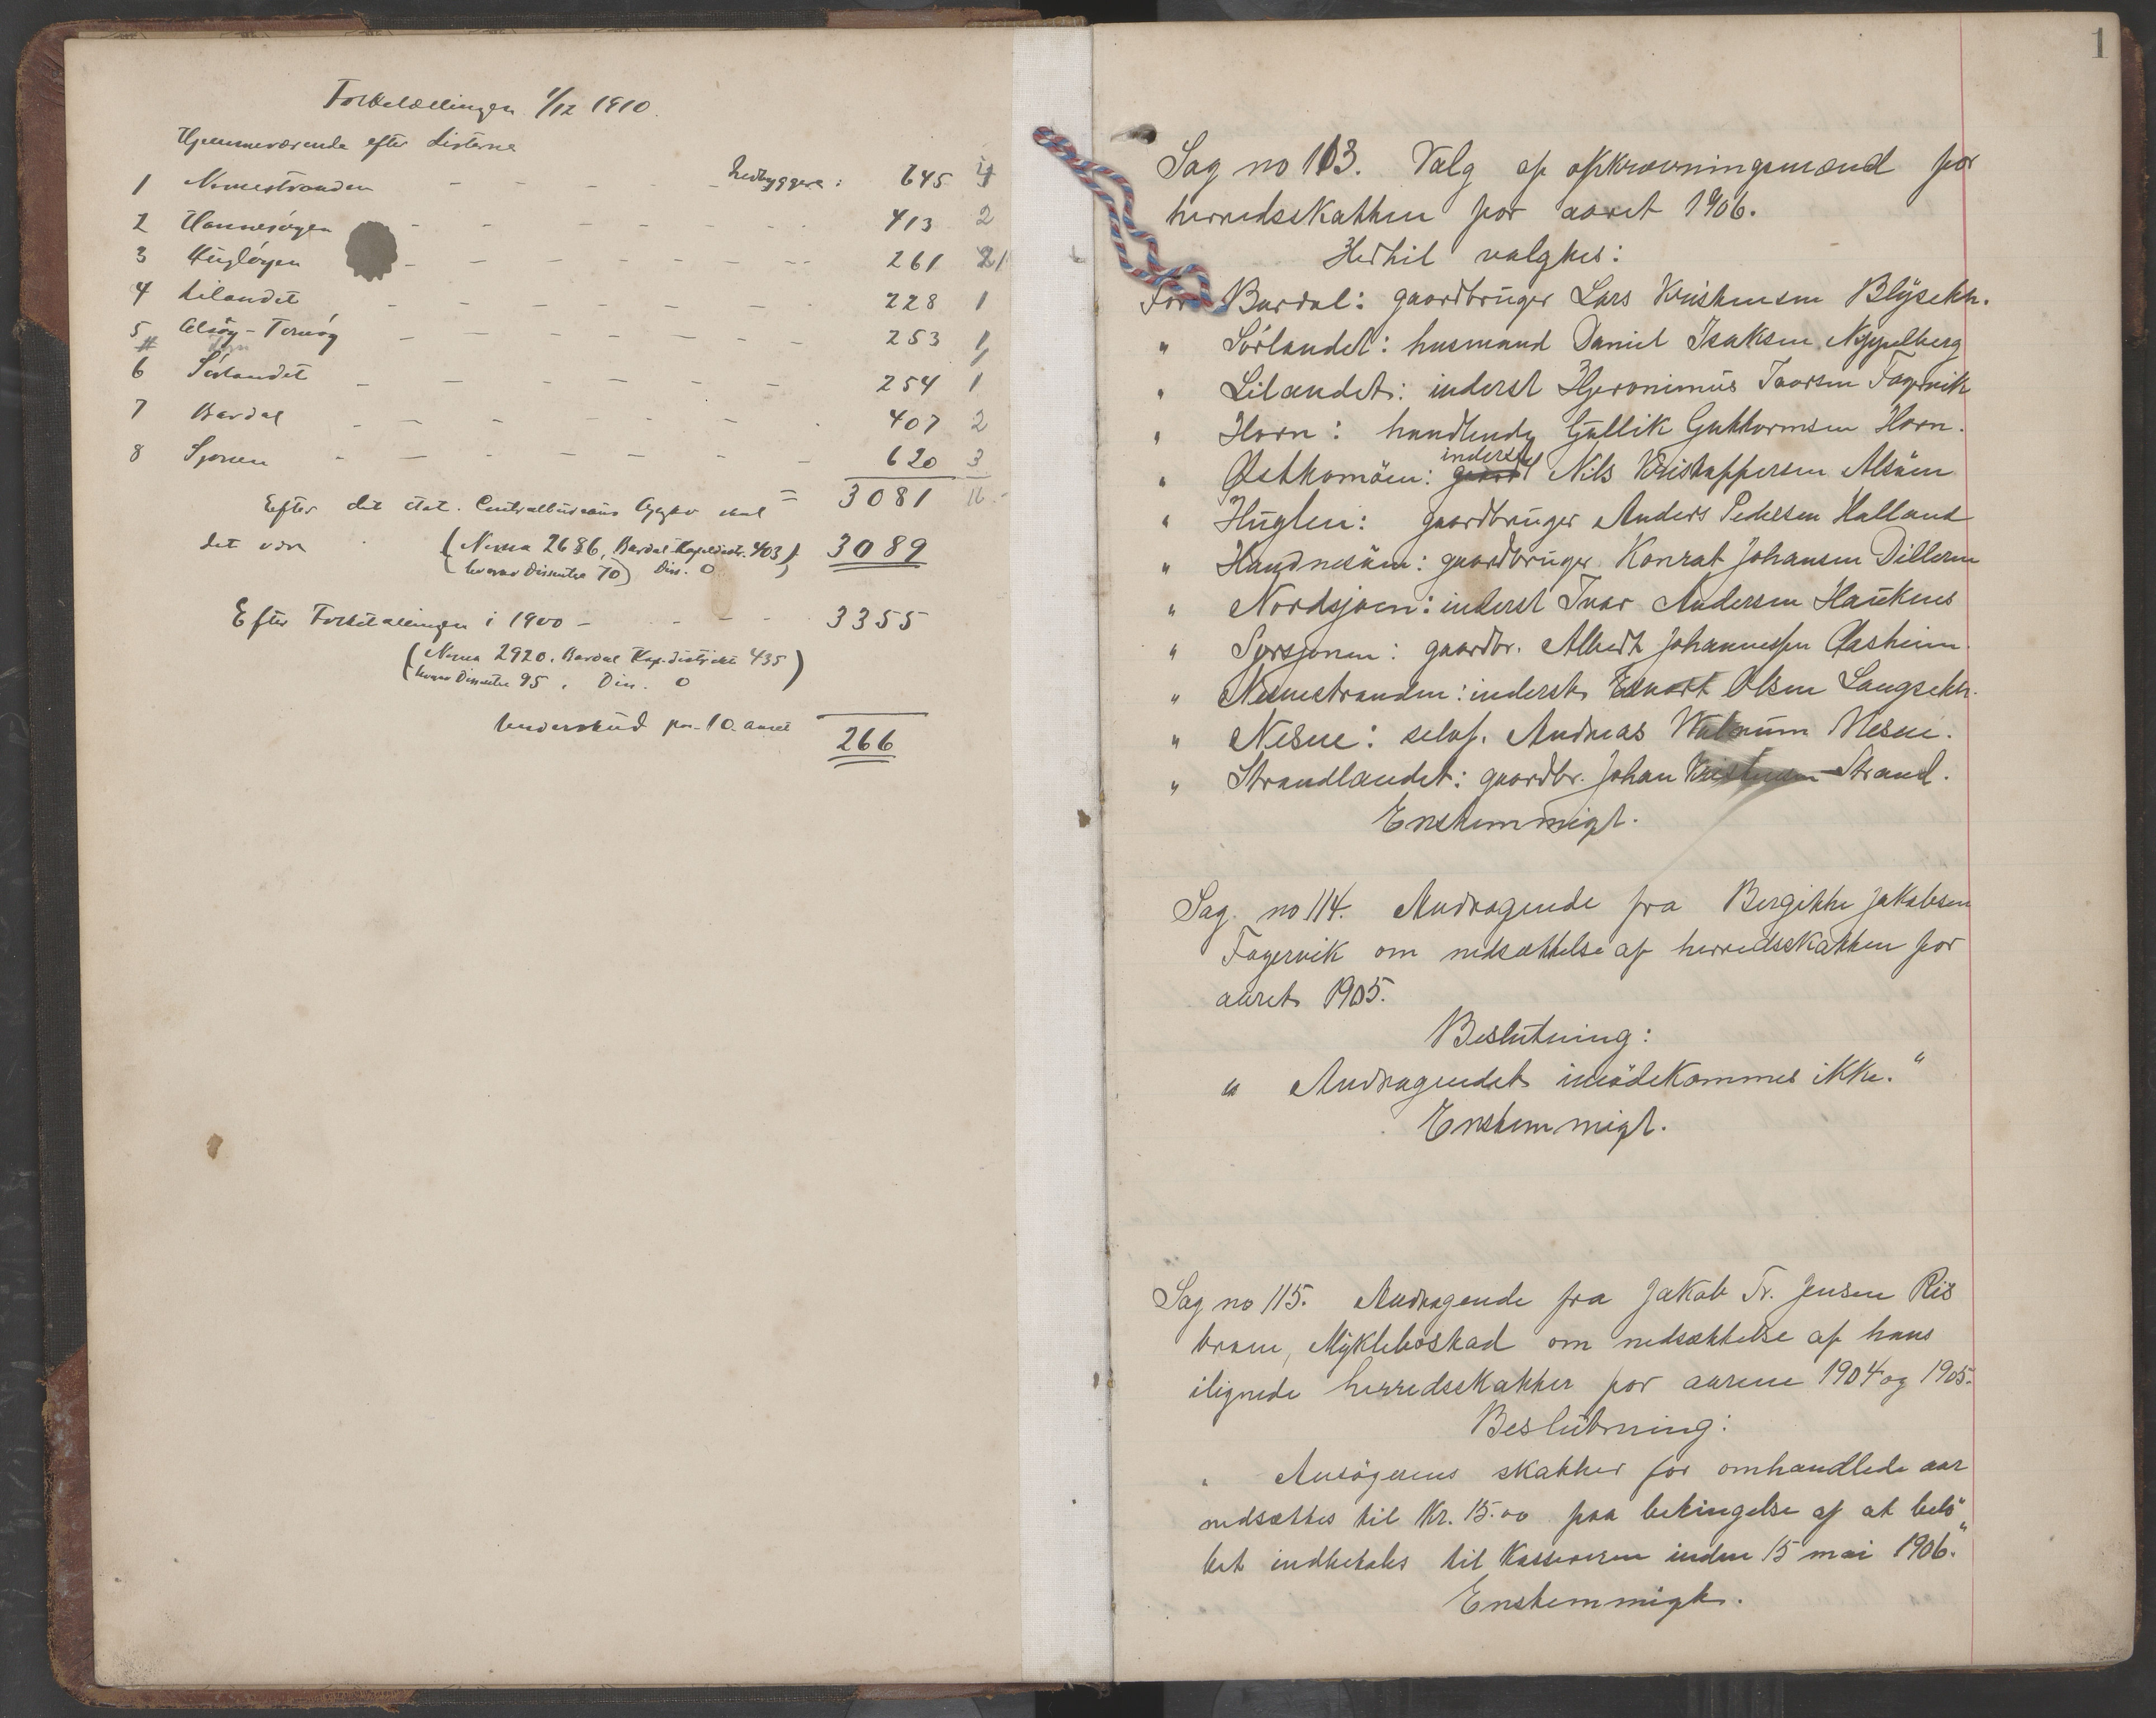 Folketællingen 1/12 1910.
Hjemmeværende efter Listerne
1 Nesnestranden - - - - Indbyggere: 645 4
2 Hannesøyen - - - - - 413 2
3 Hugløyen - - - - - 261 21
4 Lilandet - - - - - 228 1
5 Alsøy-Tomøy - - - - - 253 1
6 Sørlandet - - - - - 254 1
7 Bardal - - - - - 407 2
8 Sjonen - - - - - 620 3
Efter det stat. Centralbureaus Opgav skal = 3081 16
det være (Nesna 2686, Bardal Kapeldistr. 403) 3089
hvorav Dissentre 70) Diss. 0
Efter Folketællingen i 1900 - - - - 3355
(Nesna 2920. Bardal Kap. distrikt 435)
hvorav Dissentre 95. Diss. 0
Underskud paa 10 aaret 266
1
Sag no 113. Valg af opkrævningsmænd for
herredsskatten for aaret 1906.
Hertil valgtes:
For Bardal: gaardbruger Lars Kristensen Blysett.
" Sørlandet: husmand Daniel Isaksen Nyppelberg
" Lilandet: inderst Hjeronimus Ivarsen Fagervik
" Horn: handlende Gullik Guttormsen Horn.
inderst
" Østtomøen: gaard Nils Kristoffersen Alsøen
" Huglen: gaardbruger Anders Pedersen Halland
" Handnesøen: gaardbruger Konrat Johansen Dillern
" Nordsjonen: inderst Ivar Andersen Haukenes
" Sørsjonen: gaardbr. Albert Johannessen Aasheim
" Nesnestranden: inderst Edvart Olsen Langsett.
" Nesne: selvf. Andreas Walnum Nesne.
" Strandlandet: gaardbr. Johan Kristensen Strand.
Enstemmigt.
Sag no 114. Andragende fra Bergitte Jakobsen
Fagervik om nedsættelse af herredsskatten for
aaret 1905.
Beslutning:
" Andragendet imødekommes ikke."
Enstemmigt.
Sag no 115. Andragende fra Jakob Tr. Jensen Ris
braue, Myklebostad om nedsættelse af hans
ilignede herredsskatter for aarene 1904 og 1905.
Beslutning:
" Ansøgerens skatter for omhandlede aar
nedsættes til Kr. 15.00 paa betingelse af at belø
bet indbetales til Kassereren inden 15 mai 1906."
Enstemmigt.